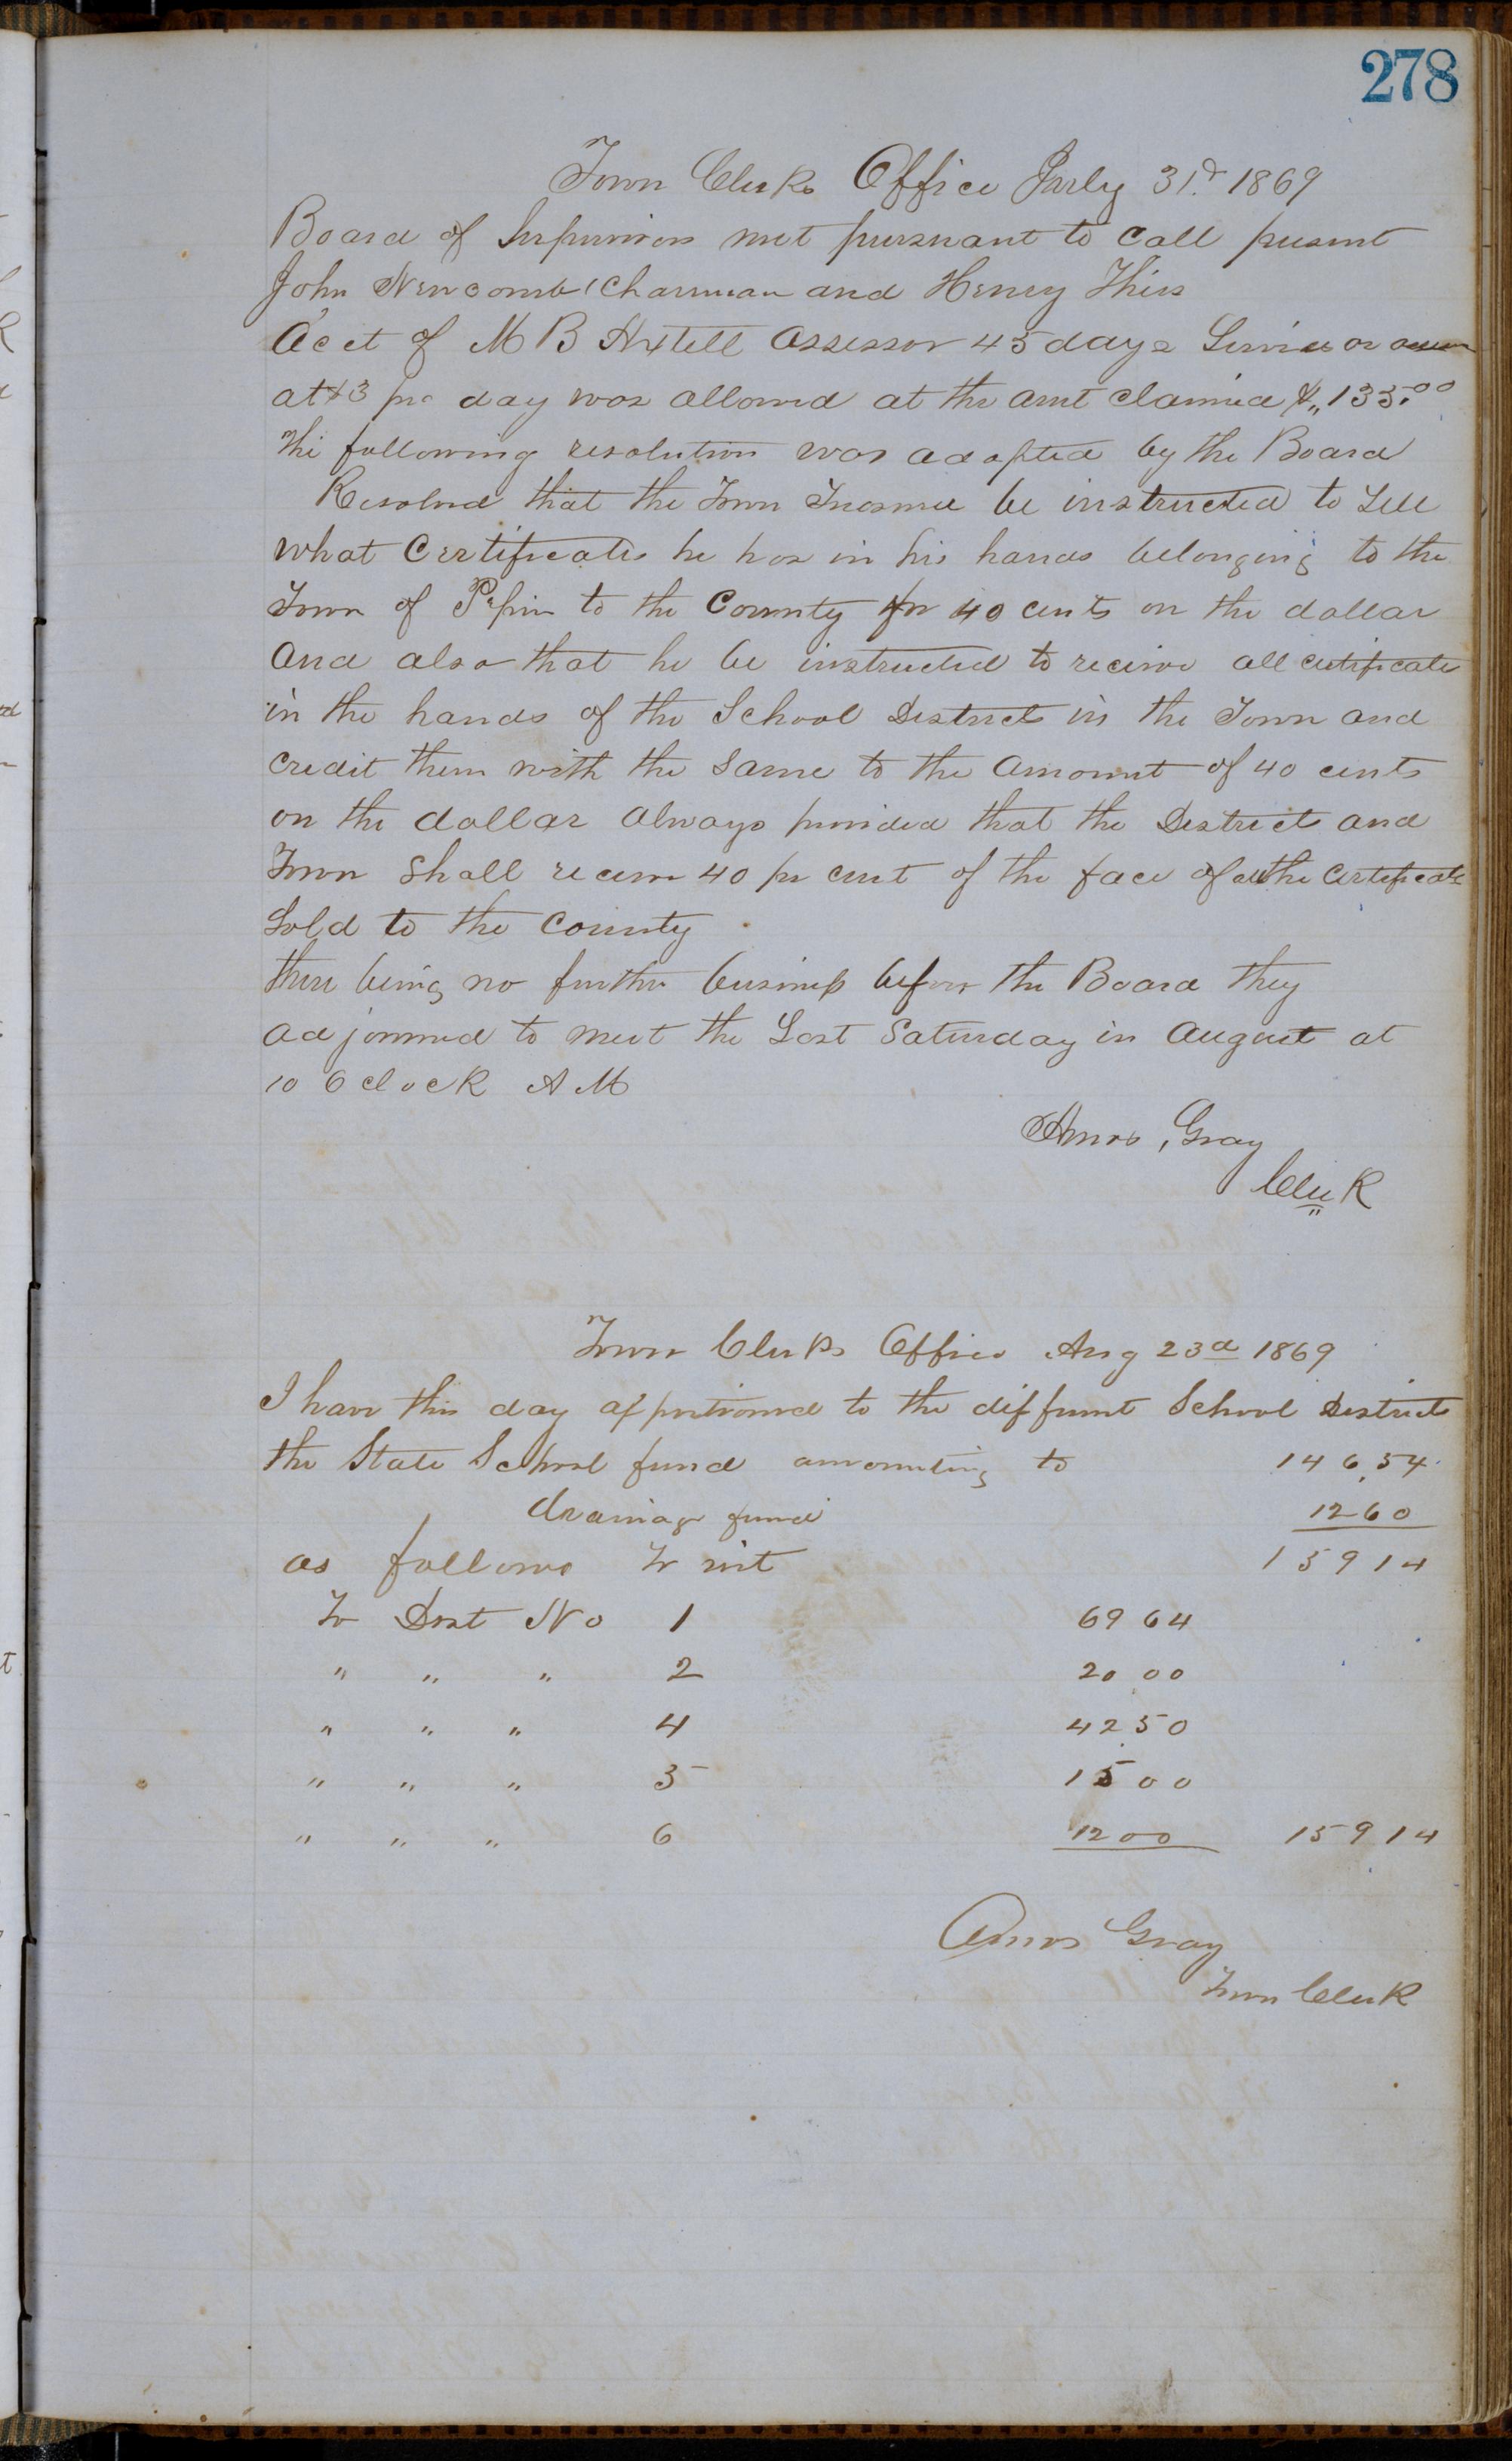 278
Town Clerks Office July 31st 1869
Board of Supervisors met pursuant to call present
John Newcomb Chairman and Henry Thies
Acct of M B Axtell Assessor 45 days Services as
at $3 pr day was allowed at the amt claimed $135.00
The following resolution was adopted by the Board
Resolved that the Town Treasurer be instructed to Sell
what Certificates he has in his hands belonging to the
Town of Pepin to the County for 40 cents on the dollar
And also that he be instructed to receive all certificates
in the hands of the School Districts in the Town and
credit them with the Same to the Amount of 40 cents
on the dollar always provided that the Districts and
Town Shall receive 40 pr cent of the face of all the Certificates
Sold to the County
there being no further business before the Board they
adjourned to meet the Last Saturday in August at
10 Oclock A M
Amos Gray
Clerk
Town Clerks Office Aug 23d 1869
I have this day apportioned to the different School Districts
the State School fund amounting to 146.54
drainage fund 12 60
as follows To wit 159 14
To Dist No 1 69 64
" " " 2 20 00
" " " 4 42 50
" " " 5 15 00
" " " 6 12 00 159 14
Amos Gray
Town Clerk